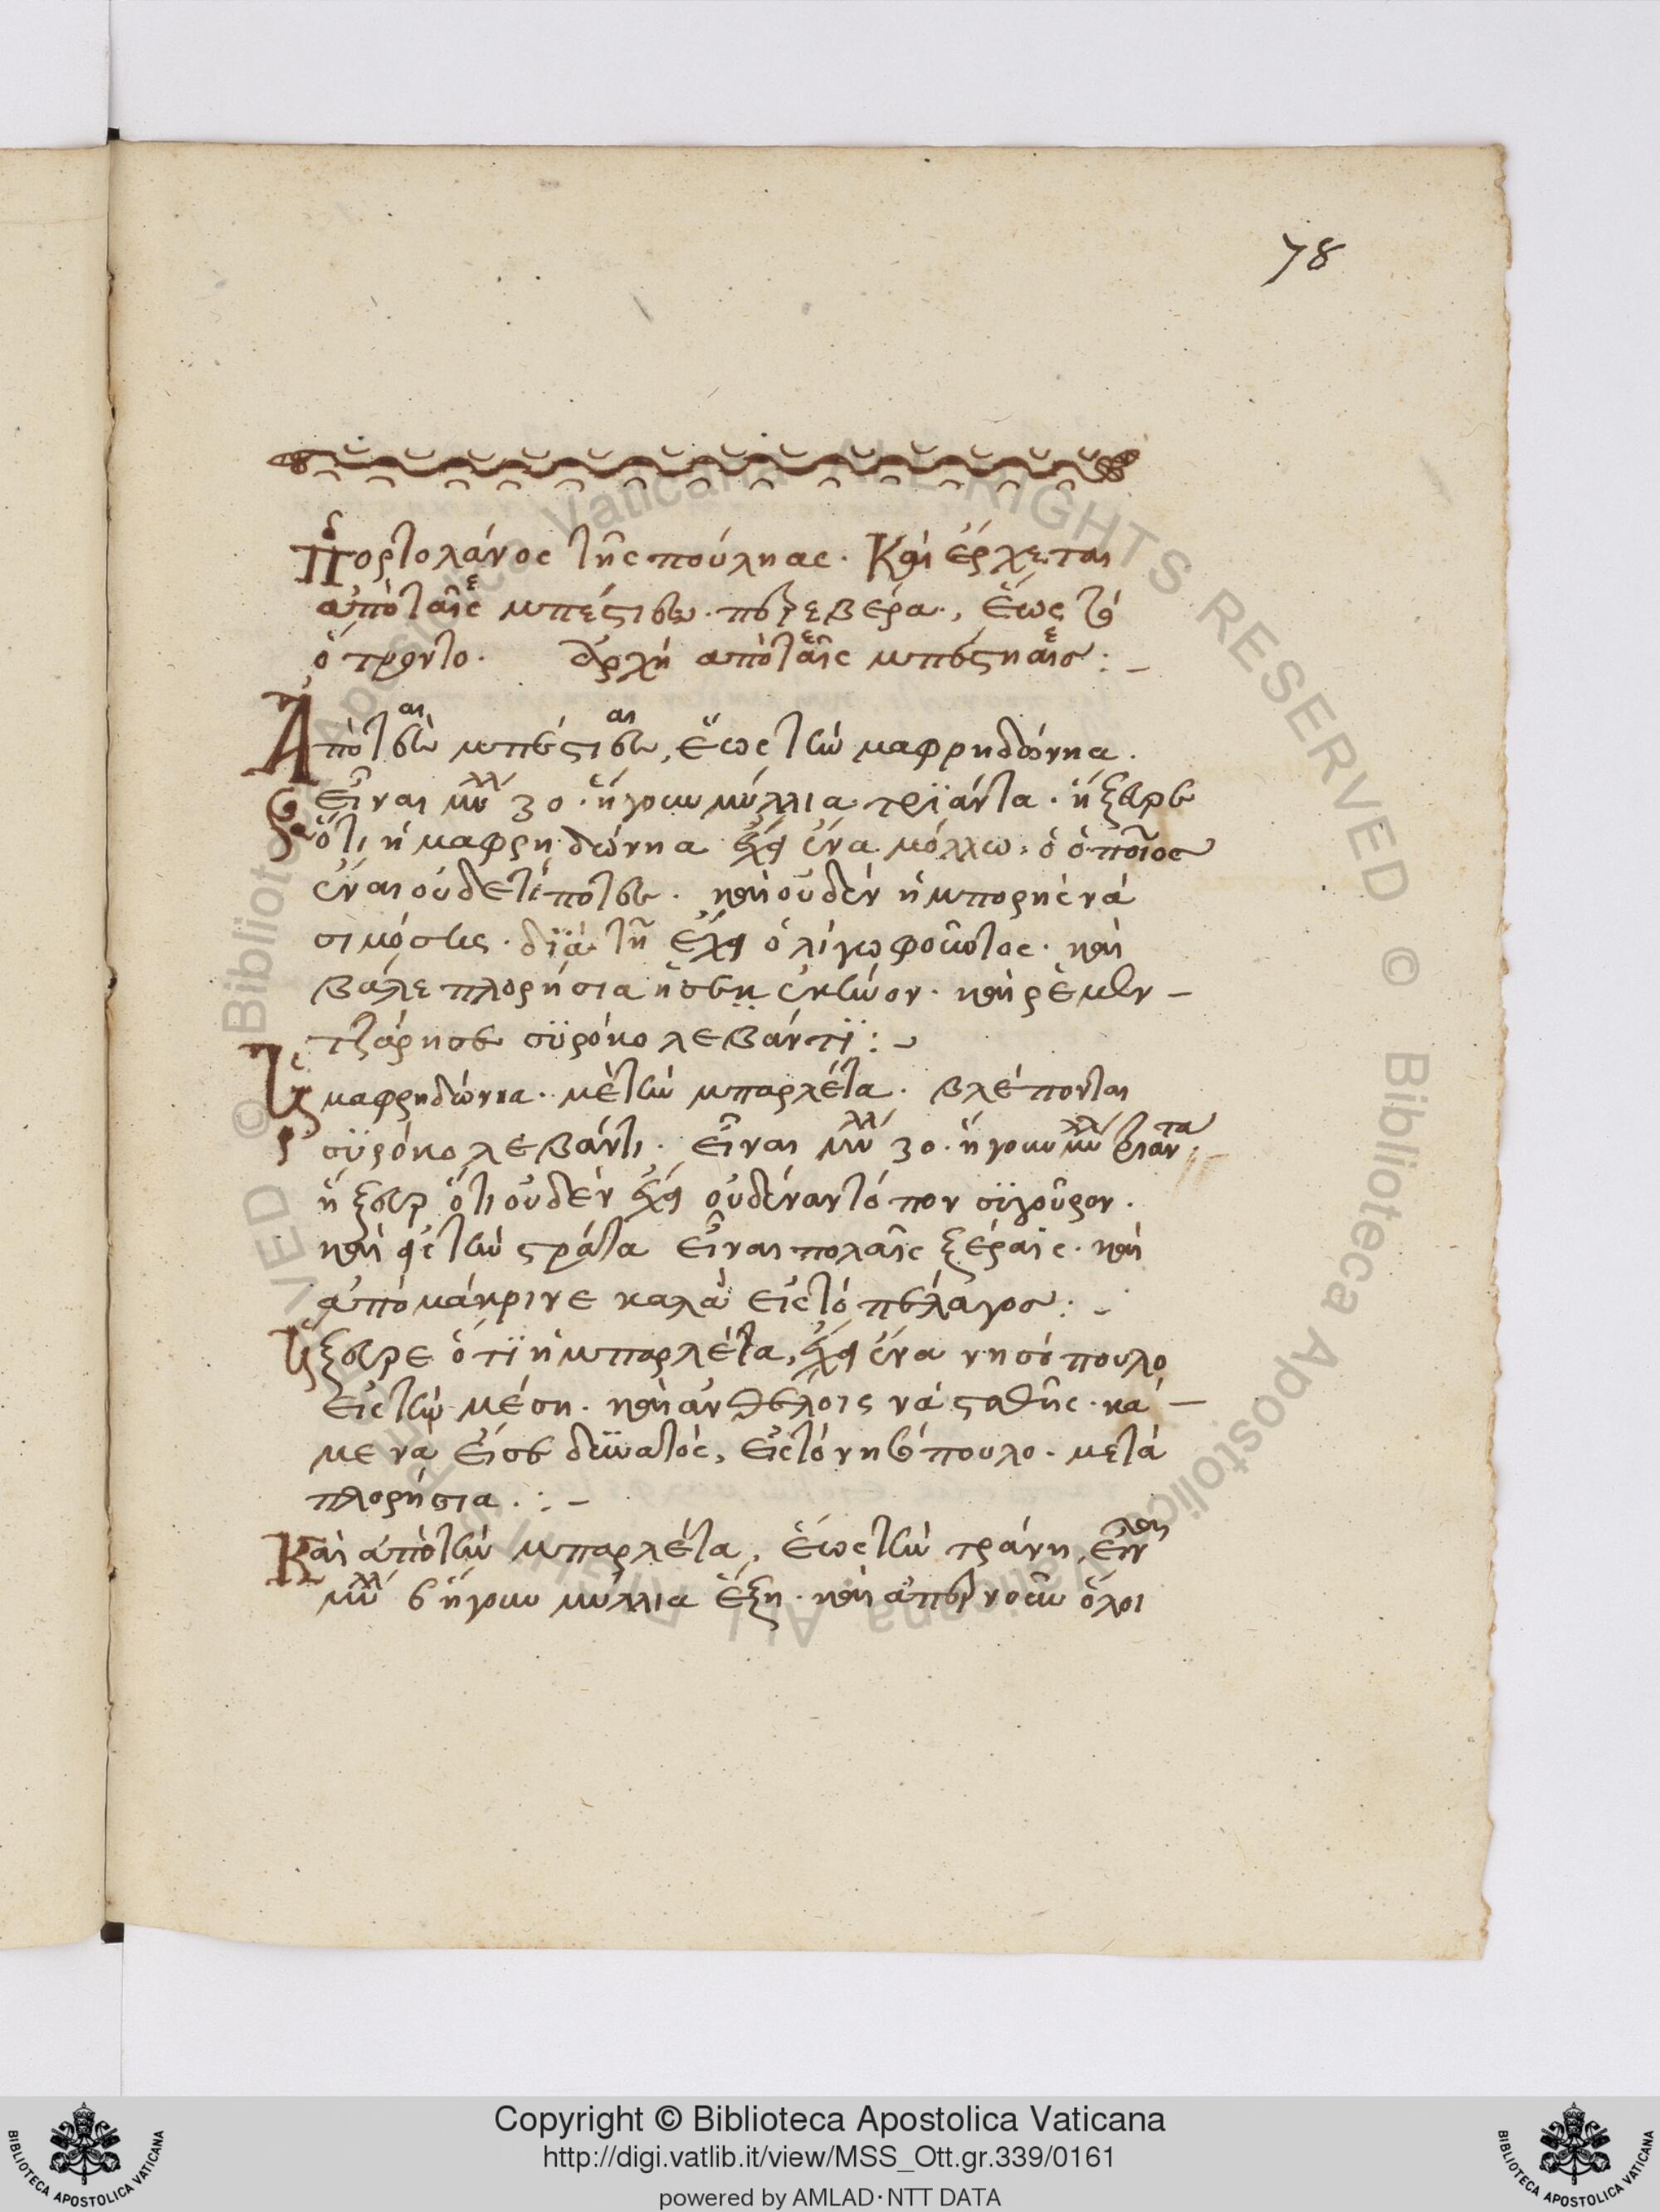 78
Πορτολάνος τῆς πούληας. Καὶ ἔρχεται
ἀπὸ ταῖς μπέστιες, ἕως τό
ὄτρωντο. Ἀρχὴ ἀπὸ ταῖς μπέστηαις:–
Ἀπὸ μπέστιες, ἕως τὴν μαφρηδώνηα.
εἶναι μύλλ 30. ἤγουν μύλλια τρϊάντα. ἤξευρε
ὅτι ἡ μαφρηδώνηα ἔχει ἕνα μόλλω, ὁ ὁποῖος
ἔναι οὐδετίποτες. καὶ οὐδὲν ἠμπορῆς νὰ
σιμόσεις. δϊατῆ ἔχει ὀλίγω φοῦντος. καὶ
βάλε πλορήσια
τζάρησε σϋρόκο λεβάντϊ:–
μαφρηδώνηα. μὲ τὴν μπαρλέτα. βλέπονται
σϋρόκο λεβάντι. εἶναι μύλλ 30. ἤγουν μύλλ τριάντα.
ἤξευρε ὅτι οὐδὲν ἔχει οὐδέναν τόπον σϋγοῦρον.
καὶ εἰς τὴν στράτα εἶναι πολαῖς ξέραις. καὶ
ἀπομάκρινε καλὰ εἰς τὸ πέλαγος:–
ἤξευρε ὅτϊ ἡ μπαρλέτα, ἔχει ἕνα νησόπουλο
εἰς τὴν μέση. καὶ ἂν θέλοις νὰ σταθῆς. κά–
με νὰ εἶσε δϋνατός, εἰς τὸ νησόπουλο. μετὰ
πλορήσια.:–
Καὶ ἀπὸ τὴν μπαρλέτα, ἕως τὴν τράνη, εἶναι
μύλλ 6 ἤγουν μύλλια ἕξη. καὶ ὅλοι
Copyright © Biblioteca Apostolica Vaticana
http://digi.vatlib.it/view/MSS_Ott.gr.339/0161
powered by AMLAD·NTT DATA
BIBLIOTECA APOSTOLICA VATICANA
BIBLIOTECA APOSTOLICA VATICANA